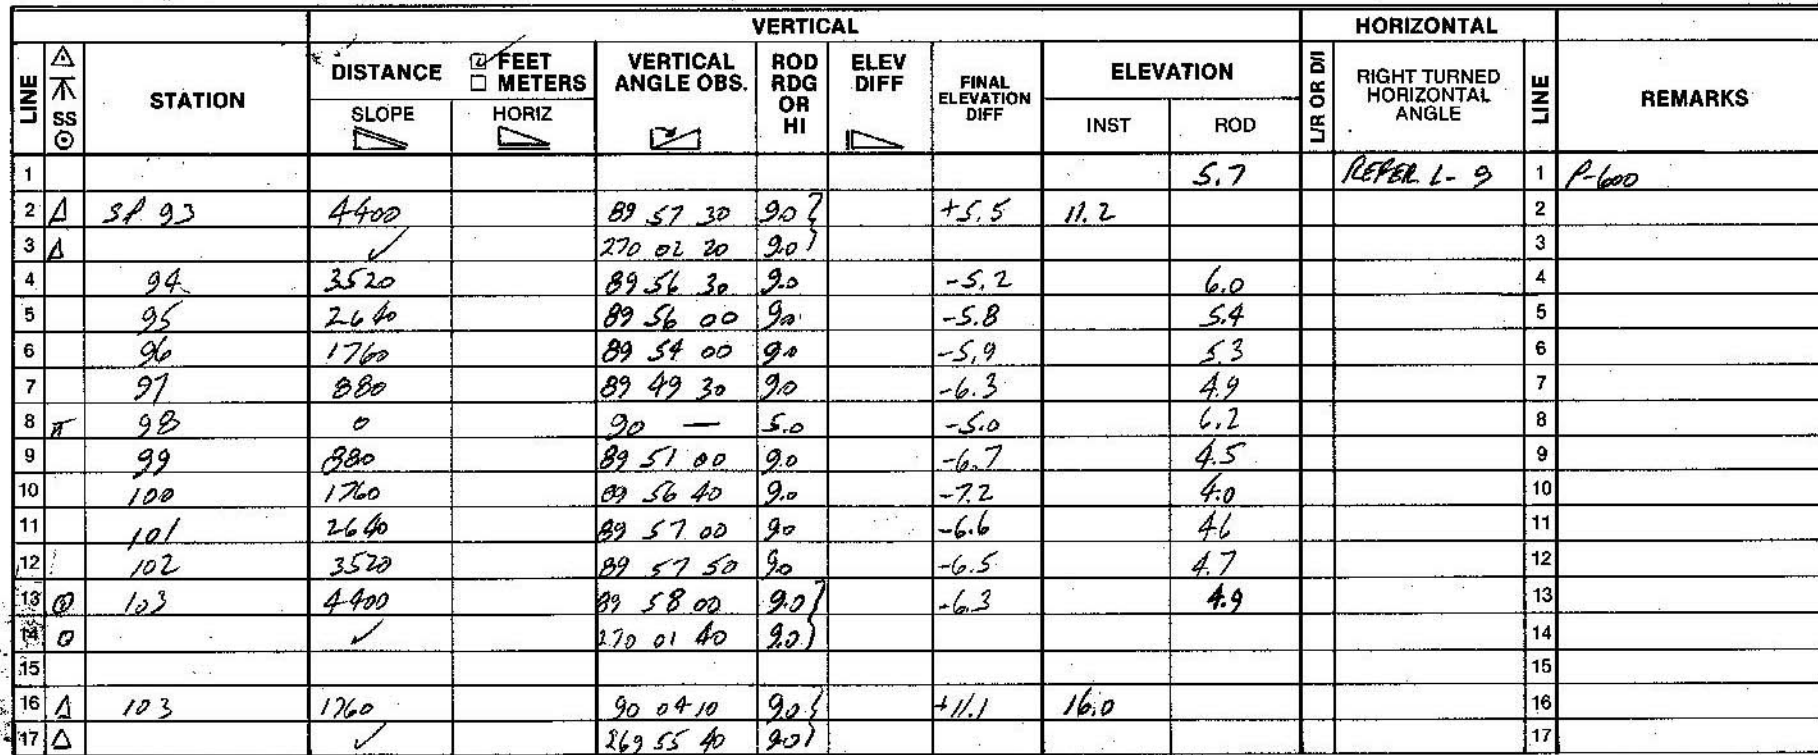 VERTICAL HORIZONTAL
LINE SS STATION DISTANCE FEET METERS SLOPE HORIZ VERTICAL ANGLE OBS. ROD RDG OR HI ELEV DIFF FINAL ELEVATION DIFF ELEVATION INST ROD L/R OR D/I RIGHT TURNED HORIZONTAL ANGLE LINE REMARKS
1 5.7 REFER L- 9 1 P-600
2 Δ SP. 93 4400 89 57 30 9.0 +5.5 11.2 2
3 Δ ✓ 270 02 20 9.0 3
4 94 3520 89 56 30 9.0 -5.2 6.0 4
5 95 2640 89 56 00 9.0 -5.8 5.4 5
6 96 1760 89 54 00 9.0 -5.9 5.3 6
7 97 880 89 49 30 9.0 -6.3 4.9 7
8 98 0 90 — 5.0 -5.0 6.2 8
9 99 880 89 51 00 9.0 -6.7 4.5 9
10 100 1760 89 56 40 9.0 -7.2 4.0 10
11 101 2640 89 57 00 9.0 -6.6 4.6 11
12 102 3520 89 57 50 9.0 -6.5 4.7 12
13 103 4400 89 58 00 9.0 -6.3 4.9 13
14 ✓ 270 01 40 9.0 14
15 15
16 Δ 103 1760 90 04 10 9.0 +11.1 16.0 16
17 Δ ✓ 269 55 40 9.0 17